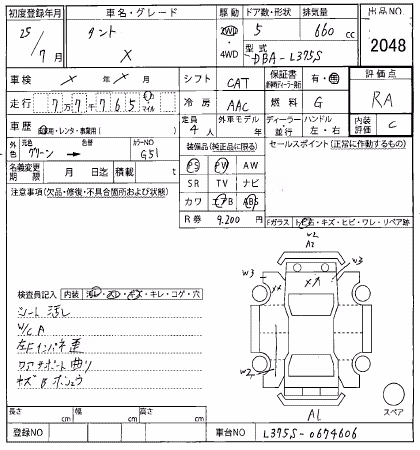 初度登録年月 車名・グレード 駆動 ドア数・形状 排気量 出品NO
25/7月 タント X 2WD・4WD 5 660cc 2048
型式 DBA-L375S
車検 × 年 × 月 シフト CAT 保証書 有・無 評価点
走行 7万7千765 マイル 冷房 AAC 燃料 G RA
車歴 自家用・レンタ・事業用( ) 定員 4人 外車モデル 年 ディーラー 並行 ハンドル 左・右 内装評価 C
外色 元色 グリーン → 色替 カラーNO G51 装備品(純正品に限る) セールスポイント(正常に作動するもの)
名義変更 月 日迄 積載 t PS PW AW
注意事項(欠品・修復・不具合箇所および状態) SR TV ナビ
カワ エアB ABS
R券 9,200円 Fガラス トビ石・キズ・ヒビ・ワレ・リペア跡
W2
A2
W3 W3
××
×A
検査員記入 内装 汚レ・スレ・キズ・キレ・コゲ・穴
シート汚レ
W/C A
左Fインパネ歪
コアサポート曲り
キズBホシュウ
W2
A1 スペア
長さ cm 幅 cm 高さ cm
登録NO 車台NO L375S-0674606